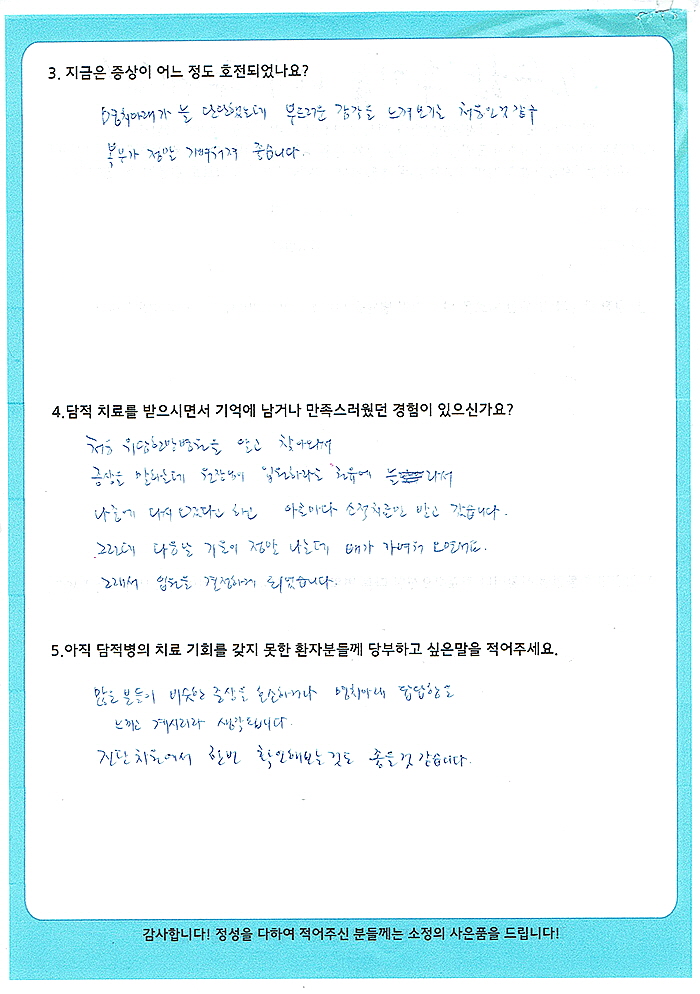 3. 지금은 증상이 어느 정도 호전되었나요?
명치아래가 늘 단단했는데 부드러운 감각을 느껴보기는 처음인것 같구
복부가 정말 가벼워져 좋습니다.
4.담적 치료를 받으시면서 기억에 남거나 만족스러웠던 경험이 있으신가요?
처음 위담한방병원을 알고 찾아와서
증상을 말하는데 원장님이 입원하라는 권유에 놀라서
나중에 다시 오겠다고 하고 소적치료만 받고 갔습니다.
그런데 다음날 기운이 정말 나는데 배가 가벼워
그래서 입원을 결정하게 되었습니다.
5.아직 담적병의 치료 기회를 갖지 못한 환자분들께 당부하고 싶은말을 적어주세요.
많은 분들이 비슷한 증상을 명치아래 답답함을
느끼고 계시리라 생각됩니다.
진단 한번 확인해보는것도 좋을것 같습니다.
감사합니다! 정성을 다하여 적어주신 분들께는 소정의 사은품을 드립니다!